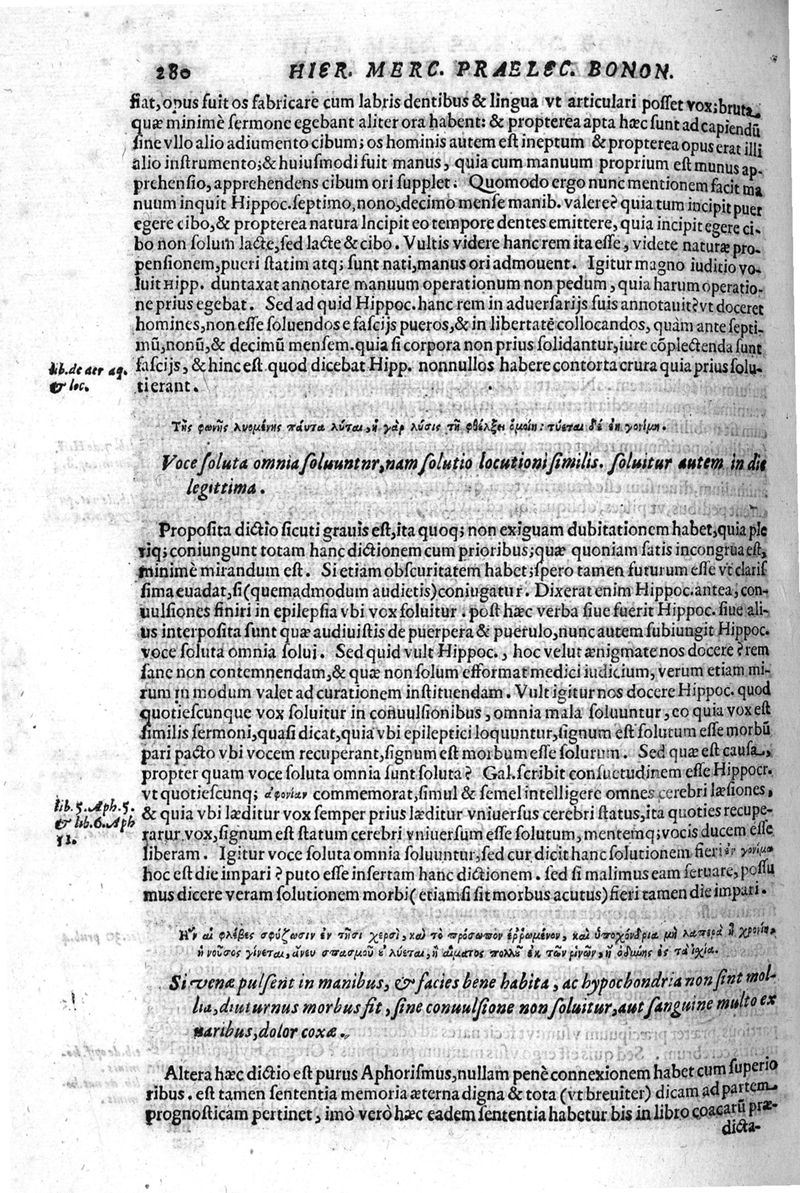 280 HIER. MERC. PRAELEC. BONON.
fiat, opus fuit os fabricare cum labris dentibus & lingua vt articulari posset vox; bruta
quæ minimè sermone egebant aliter ora habent: & propterea apta hæc sunt ad capiendū
sine vllo alio adiumento cibum; os hominis autem est ineptum & propterea opus erat illi
alio instrumento; & huiusmodi fuit manus, quia cum manuum proprium est munus ap-
prehensio, apprehendens cibum ori supplet. Quomodo ergo nunc mentionem facit ma
nuum inquit Hippoc. septimo, nono, decimo mense manib. valere? quia tum incipit puer
egere cibo, & propterea natura Incipit eo tempore dentes emittere, quia incipit egere ci-
bo non solum lacte, sed lacte & cibo. Vultis videre hanc rem ita esse, videte naturæ pro-
pensionem, pueri statim atq; sunt nati, manus ori admouent. Igitur magno iuditio vo-
luit Hipp. duntaxat annotare manuum operationum non pedum, quia harum operatio-
ne prius egebat. Sed ad quid Hippoc. hanc rem in aduersarijs suis annotauit? vt doceret
homines, non esse soluendos e fascijs pueros, & in libertatē collocandos, quàm ante septi-
mū, nonū, & decimū mensem. quia si corpora non prius solidantur, iure cōplectenda sunt
lib. de aer aq. & loc.
fascijs, & hinc est quod dicebat Hipp. nonnullos habere contorta crura quia prius solu-
ti erant.
Τῆς φωνῆς λυομένης πάντα λύται, ἡ γὰρ λύσις τῇ φθέγξει ὁμοίη: τύεται δὲ ἐν γονίμῃ.
Voce soluta omnia soluuntnr, nam solutio locutioni similis. soluitur autem in die
legittima.
Proposita dictio sicuti grauis est, ita quoq; non exiguam dubitationem habet, quia ple
riq; coniungunt totam hanc dictionem cum prioribus; quæ quoniam satis incongrua est,
minimè mirandum est. Si etiam obscuritatem habet; spero tamen futurum esse vt claris
sima euadat, si (quemadmodum audietis) coniugatur. Dixerat enim Hippoc. antea, con-
uulsiones finiri in epilepsia vbi vox soluitur. post hæc verba siue fuerit Hippoc. siue ali-
us interposita sunt quæ audiuistis de puerpera & puerulo, nunc autem subiungit Hippoc.
voce soluta omnia solui. Sed quid vult Hippoc., hoc velut ænigmate nos docere? rem
sane non contemnendam, & quæ non solum efformat medici iudicium, verum etiam mi-
rum in modum valet ad curationem instituendam. Vult igitur nos docere Hippoc. quod
quotiescunque vox soluitur in conuulsionibus, omnia mala soluuntur, eo quia vox est
similis sermoni, quasi dicat, quia vbi epileptici loquuntur, signum est solutum esse morbū
pari pacto vbi vocem recuperant, signum est morbum esse solurum. Sed quæ est causa,
propter quam voce soluta omnia sunt soluta? Gal. scribit consuetudinem esse Hippocr.
vt quotiescunq; ἀφονίαν commemorat, simul & semel intelligere omnes cerebri læsiones,
lib. 5. Aph. 5. & lib. 6. Aph 51.
& quia vbi læditur vox semper prius læditur vniuersus cerebri status, ita quoties recupe-
rarur vox, signum est statum cerebri vniuersum esse solutum, mentemq; vocis ducem esse
liberam. Igitur voce soluta omnia soluuntur, sed cur dicit hanc solutionem fieri ἐν γονίμῳ
hoc est die impari? puto esse insertam hanc dictionem. sed si malimus eam seruare, possu
mus dicere veram solutionem morbi (etiamsi sit morbus acutus) fieri tamen die impari.
Ην αἱ φλέβες σφύζωσιν ἐν τῇσι χερσὶ, καὶ τὸ πρόσωπον ἐῤῥωμένον, καὶ ὑποχόνδρια μὴ λαπαρὰ ᾖ χρονίη
ἡ νοῦσος γίνεται, ἄνευ σπασμοῦ ὐ λύεται, ἢ αἵματος πολλοῦ ἐκ τῶν ῥινῶν, ἢ ὀδύνης ἐς τὰ ἰσχία.
Si venæ pulsent in manibus, & facies bene habita, ac hypochondria non sint mol-
lia, diuturnus morbus fit, sine conuulsione non soluitur, aut sanguine multo ex
naribus, dolor coxæ.
Altera hæc dictio est purus Aphorismus, nullam penè connexionem habet cum superio
ribus. est tamen sententia memoria æterna digna & tota (vt breuiter) dicam ad partem
prognosticam pertinet, imò verò hæc eadem sententia habetur bis in libro coacarū præ-
dicta-